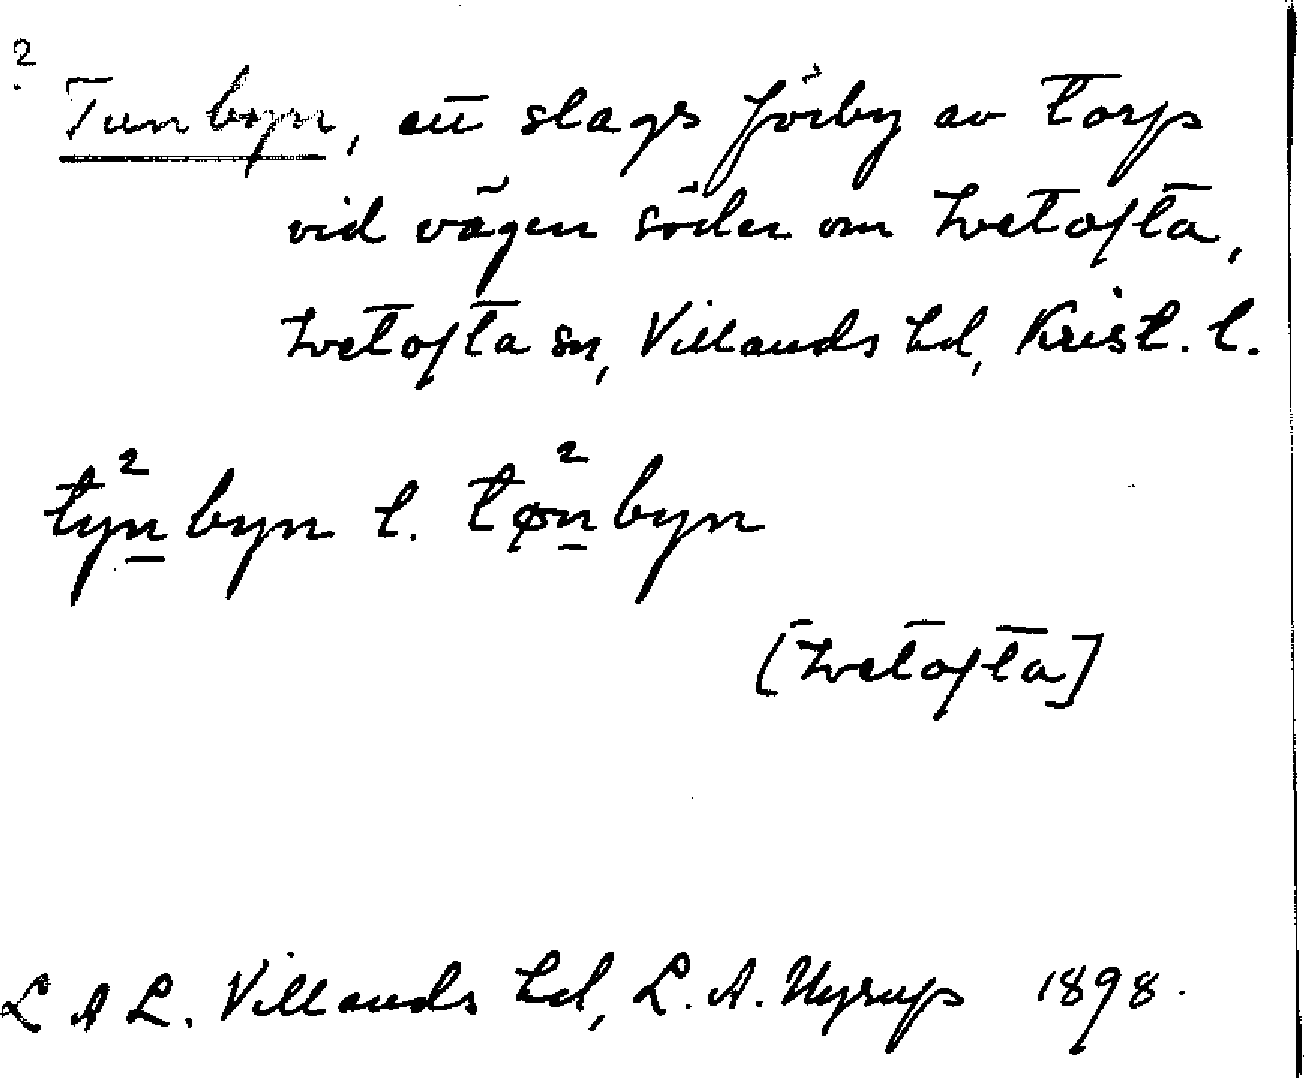 ?
Tunbyn, ett slags förby av torp
vid vägen söder om Ivetofta,
Ivetofta sn, Villands hd, Krist. l.
ty²n̲byn l. tø²n̲byn
[Ivetofta]
LAL. Villands hd, L. A. Nyrup 1898.